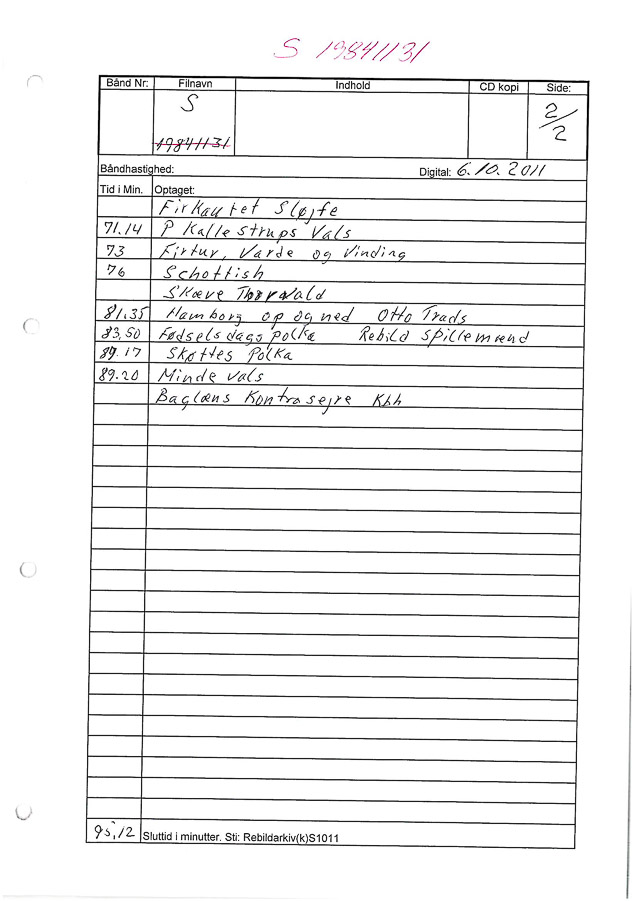 S 19841131
Bånd Nr: Filnavn Indhold CD kopi Side:
S 2/2
19841131
Båndhastighed: Digital: 6.10.2011
Tid i Min. Optaget:
Firkantet Sløjfe
71.14 P Kallestrups Vals
73 Firtur, Varde og Vinding
76 Schottish
Skæve Thorvald
81.35 Hamborg op og ned Otto Trads
83,50 Fødselsdags polka Rebild Spillemænd
87.17 Skøttes Polka
89.20 Minde vals
Baglæns Kontrasejre Kbh
95,12 Sluttid i minutter. Sti: Rebildarkiv(k)S1011